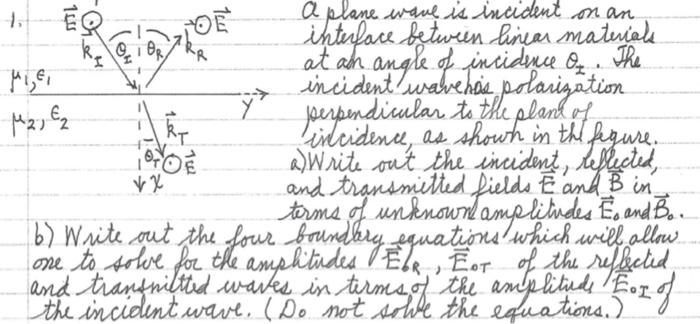 1.
E⃗ ⊙
⊙ E⃗
k⃗_I θ_I θ_R k⃗_R
μ₁, ϵ₁
y
μ₂, ϵ₂
k⃗_T
θ_T ⊙ E⃗
x
A plane wave is incident on an
interface between linear materials
at an angle of incidence θ_I. The
incident wave has polarization
perpendicular to the plane of
incidence, as shown in the figure.
a) Write out the incident, reflected,
and transmitted fields E⃗ and B⃗ in
terms of unknown amplitudes E⃗₀ and B⃗₀.
b) Write out the four boundary equations which will allow
one to solve for the amplitudes E⃗_0R, E⃗_0T of the reflected
and transmitted waves in terms of the amplitude E⃗_0I of
the incident wave. (Do not solve the equations.)